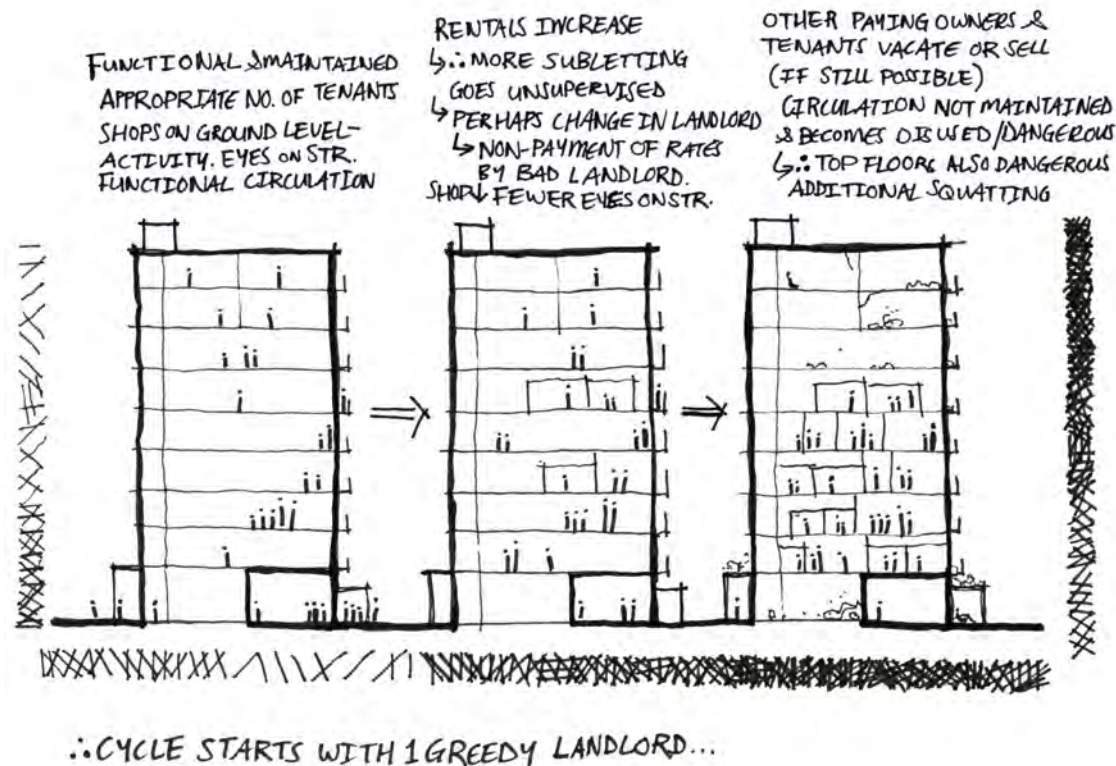 FUNCTIONAL & MAINTAINED
APPROPRIATE NO. OF TENANTS
SHOPS ON GROUND LEVEL-
ACTIVITY. EYES ON STR.
FUNCTIONAL CIRCULATION
RENTALS INCREASE
↳∴ MORE SUBLETTING
GOES UNSUPERVISED
↳ PERHAPS CHANGE IN LANDLORD
↳ NON-PAYMENT OF RATES
BY BAD LANDLORD.
SHOP↓ FEWER EYES ON STR.
OTHER PAYING OWNERS &
TENANTS VACATE OR SELL
(IF STILL POSSIBLE)
CIRCULATION NOT MAINTAINED
& BECOMES DISUSED/DANGEROUS
↳∴ TOP FLOORS ALSO DANGEROUS
ADDITIONAL SQUATTING
∴ CYCLE STARTS WITH 1 GREEDY LANDLORD...